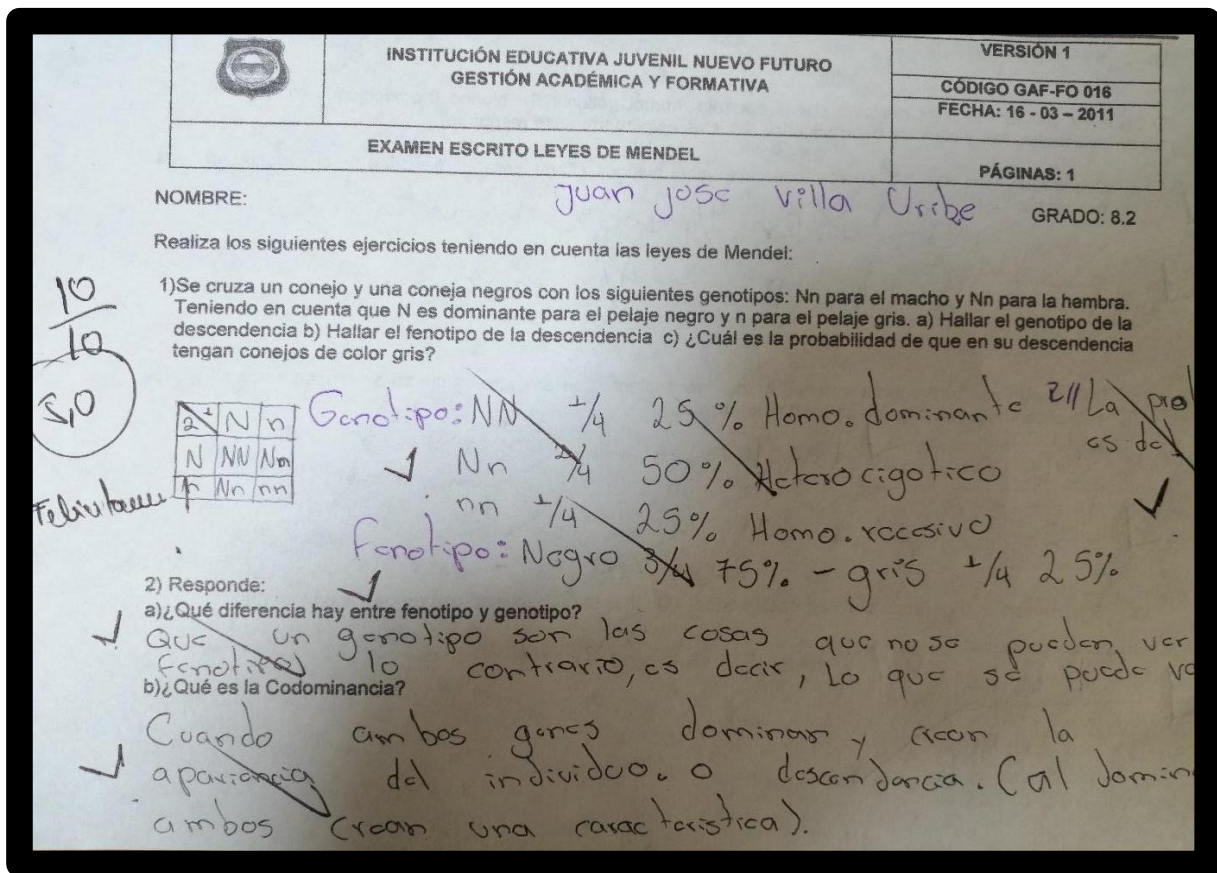 INSTITUCIÓN EDUCATIVA JUVENIL NUEVO FUTURO
GESTIÓN ACADÉMICA Y FORMATIVA
VERSIÓN 1
CÓDIGO GAF-FO 016
FECHA: 16 - 03 – 2011
EXAMEN ESCRITO LEYES DE MENDEL
PÁGINAS: 1
NOMBRE: Juan Jose Villa Uribe GRADO: 8.2
Realiza los siguientes ejercicios teniendo en cuenta las leyes de Mendel:
10
10
5,0
1)Se cruza un conejo y una coneja negros con los siguientes genotipos: Nn para el macho y Nn para la hembra.
Teniendo en cuenta que N es dominante para el pelaje negro y n para el pelaje gris. a) Hallar el genotipo de la
descendencia b) Hallar el fenotipo de la descendencia c) ¿Cuál es la probabilidad de que en su descendencia
tengan conejos de color gris?
N n
N NN Nn
n Nn nn
Genotipo: NN 1/4 25% Homo. dominante
La
es
Nn 2/4 50% Heterocigotico
nn 1/4 25% Homo. recesivo
Fenotipo: Negro 3/4 75% - gris 1/4 25%
2) Responde:
a)¿Qué diferencia hay entre fenotipo y genotipo?
Que un genotipo son las cosas que no se pueden ver
lo contrario, es decir, Lo que se puede
b)¿Qué es la Codominancia?
Cuando ambos genes dominan y crean la
apariencia del individuo. o descendencia. (al
ambos crean una caracteristica).